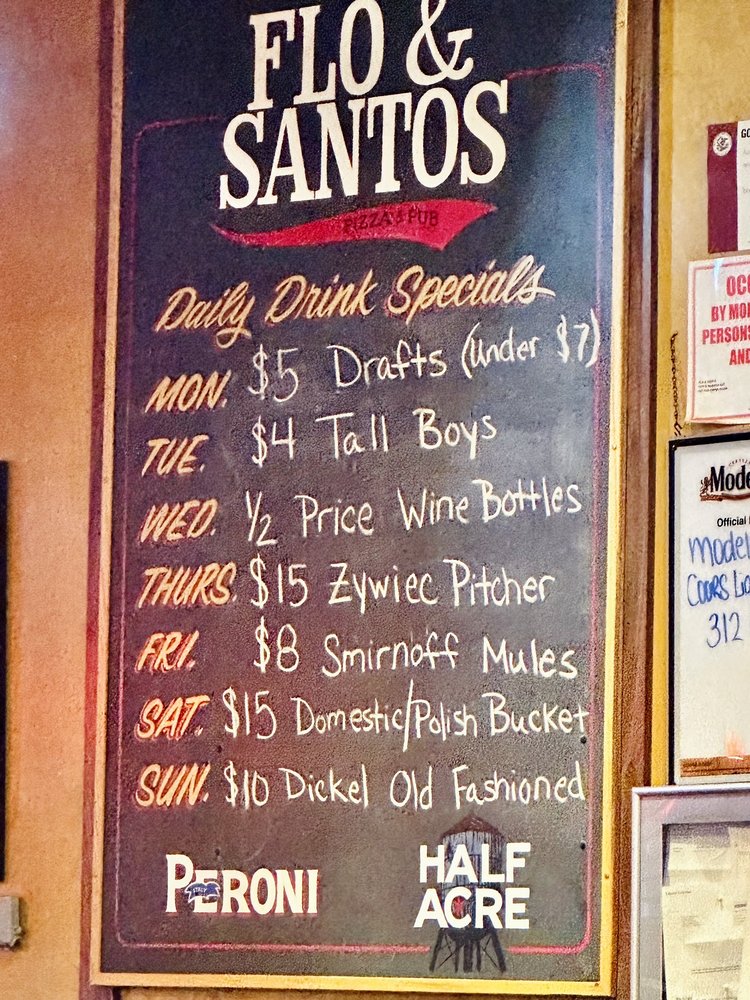 FLO &
SANTOS
PIZZA & PUB
Daily Drink Specials
MON. $5 Drafts (Under $7)
TUE. $4 Tall Boys
WED. ½ Price Wine Bottles
THURS. $15 Zywiec Pitcher
FRI. $8 Smirnoff Mules
SAT. $15 Domestic/Polish Bucket
SUN. $10 Dickel Old Fashioned
PERONI
ITALY
HALF
ACRE
GO
OCC
BY MO
PERSONS
AND
Mode
Official
Model
Coors Li
312